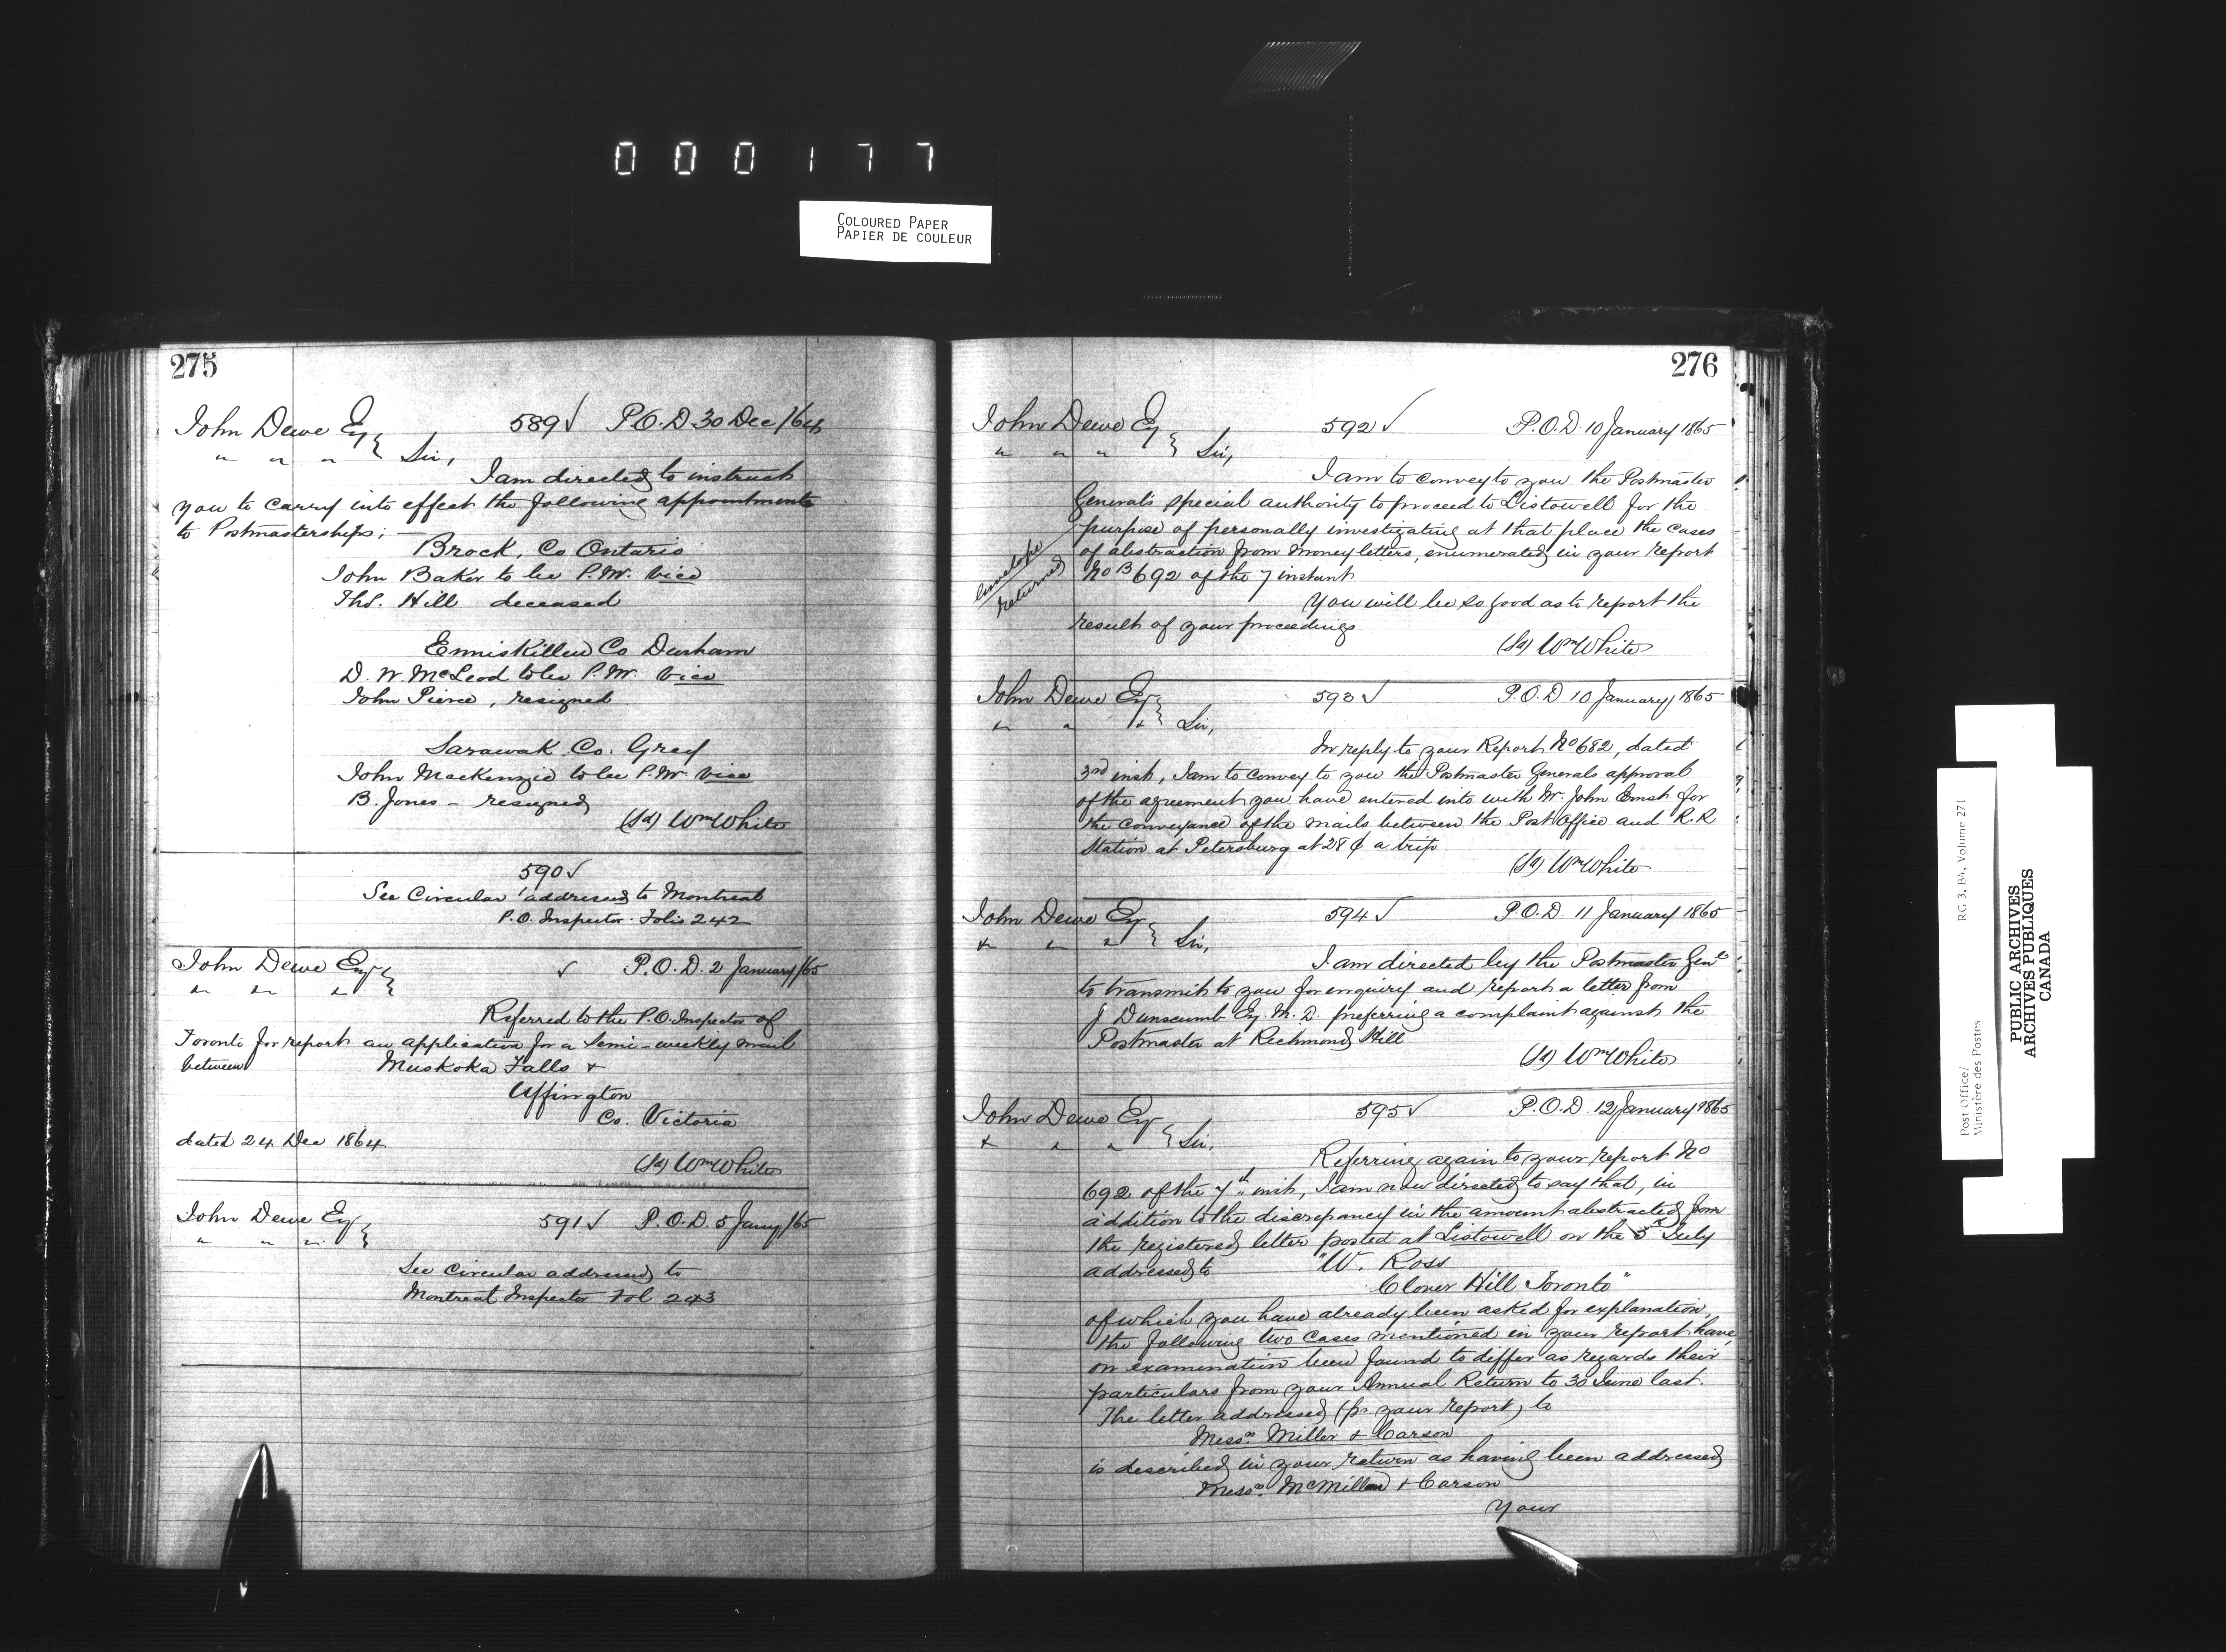 000177
COLOURED PAPER
PAPIER DE COULEUR
275
John Dewe Esq 589 ✓ P.O.D 30 Dec/64
" " " Sir,
I am directed to instruct
you to carry into effect the following appointments
to Postmasterships; —
Brock, Co Ontario
John Baker to be P.M. vice
Thos. Hill deceased
Enniskillen Co Durham
D. W. McLeod to be P.M. vice
John Pierce, resigned
Sarawak Co. Grey
John Mackenzie to be P.M. vice
B. Jones - resigned
(Sd) Wm White
590 ✓
See Circular addressed to Montreal
P.O. Inspector Folio 242
John Dewe Esq ✓ P.O.D. 2 January/65
" " "
Referred to the P.O. Inspector of
Toronto for report an application for a semi-weekly mail
between Muskoka Falls &
Uffington
Co. Victoria
dated 24 Dec 1864
(Sd) Wm White
John Dewe Esq 591 ✓ P.O.D. 5 Jany/65
" " "
See Circular addressed to
Montreal Inspector Fol 243
276
John Dewe Esq 592 ✓ P.O.D 10 January 1865
" " " Sir,
I am to convey to you the Postmaster
General's special authority to proceed to Listowell for the
purpose of personally investigating at that place the cases
of abstraction from money letters, enumerated in your report
No B 692 of the 7 instant
envelope
returned
You will be so good as to report the
result of your proceedings
(Sd) Wm White
John Dewe Esq 593 ✓ P.O.D 10 January 1865
" " " Sir,
In reply to your Report No 682, dated
3rd inst, I am to convey to you the Postmaster Generals approval
of the agreement you have entered into with Mr. John Ernst for
the conveyance of the mails between the Post Office and R.R
Station at Petersburg at 28 ¢ a trip
(Sd) Wm White
John Dewe Esq 594 ✓ P.O.D. 11 January 1865
" " " Sir,
I am directed by the Postmaster Genl
to transmit to you for enquiry and report a letter from
J Dunscumb Esq. M.D. preferring a complaint against the
Postmaster at Richmond Hill
(Sd) Wm White
John Dewe Esq 595 ✓ P.O.D. 12 January 1865
" " " Sir,
Referring again to your report No
692 of the 7th inst, I am now directed to say that, in
addition to the discrepancy in the amount abstracted from
the registered letter posted at Listowell on the July
addressed to "W. Ross
Clover Hill Toronto"
of which you have already been asked for explanation,
the following two cases mentioned in your report have,
on examination been found to differ as regards their
particulars from your Annual Return to 30 June last.
The letter addressed (pr. your report) to
Messrs. Miller & Carson
is described in your return as having been addressed
Messrs. McMillan & Carson
Your
Post Office/ RG 3, B4, Volume 271
Ministère des Postes
PUBLIC ARCHIVES
ARCHIVES PUBLIQUES
CANADA